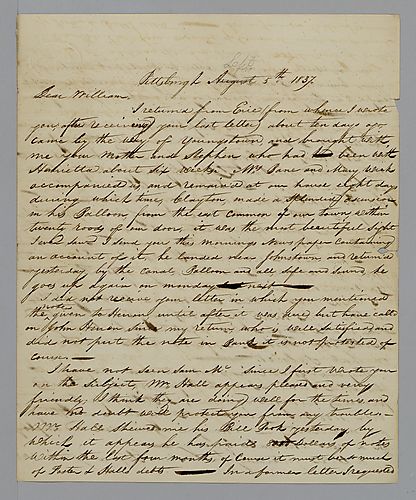 Sept
Pittsburgh August 5th 1837.
Dear William,
I returned from Erie (from where I wrote
you after receiving your last letter) about ten days ago
came by the way of Youngstown and brought with
me your Mother and Stephen who had been with
Henrietta about six weeks. Mrs Jane and Mary
accompanied us and remained at our house eight days
during which time, Clayton, made a splendid ascension
in his Balloon, from the east common of our town within
twenty roods of our door, it was the most beautiful sight
I ever saw. I send you this mornings News paper containing
an account of it. he landed near Johnstown and returned
yesterday by the canal. Balloon and all safe and sound, he
goes up again on monday next
I did not receive your letter in which you mentioned
the note given to until after it was due but have called
on John since my return, who is well satisfied and
did not put the note in Bank it is not protested of
course. —
I have not seen Sam Mc since I first wrote you
on the subject, Mr Hall appears pleased and very
friendly. I think they are doing well for the times and
have no doubt will protect you from any trouble —
Mr Hall shewed me his Bill Book yesterday by
which it appears he has paid dollars of notes
within the last four months, of course it must be so much
of & Halls debts — In a former letter I requested